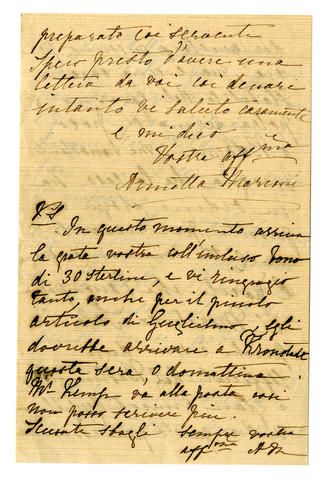 preparato coi servente
Spero presto d'avere una
lettera da voi coi denari
intanto vi saluto caramente
e mi dico
Vostra aff.ma
Annetta Marconi
PS In questo momento arriva
la grata vostra coll'incluso
di 30 Sterline, e vi ringrazio
tanto, anche per il piccolo
articolo di Guglielmo, egli
dovrebbe arrivare a Kronstadt
questa sera o domattina.
Mr. Kemp va alla posta così
non posso scrivere più.
Scusate sbagli sempre vostra
aff.ma A M